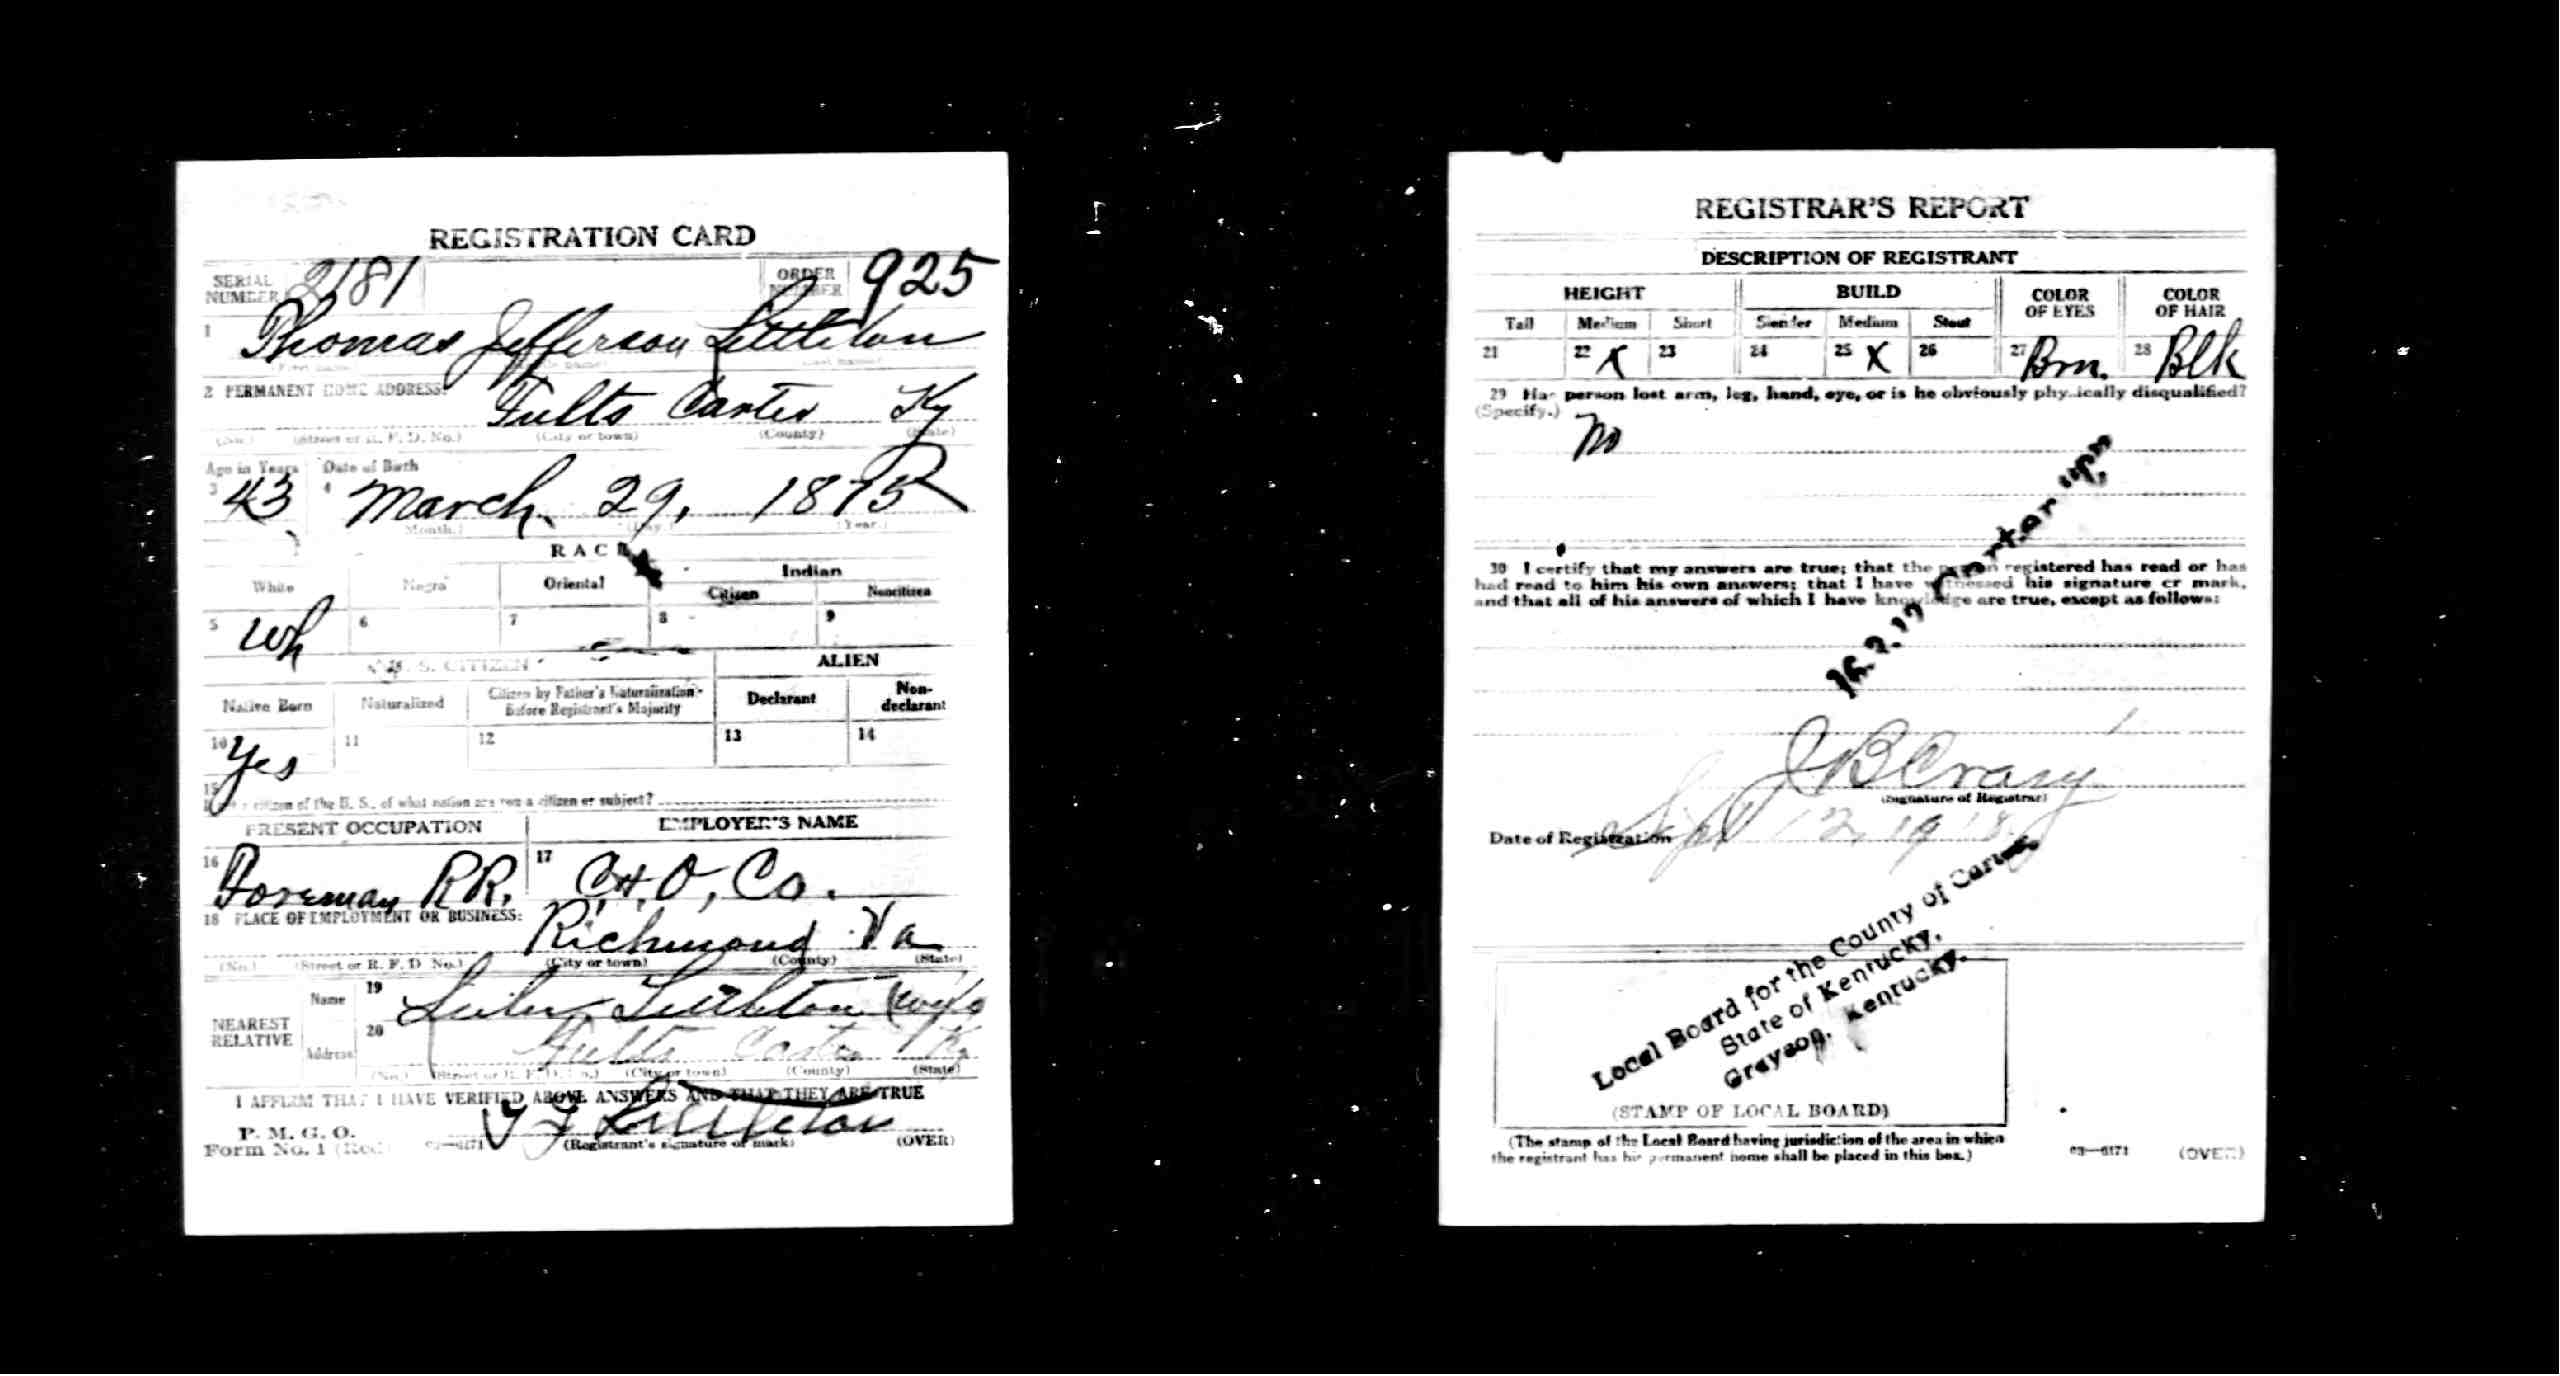 REGISTRATION CARD
SERIAL NUMBER 2181 ORDER NUMBER 925
1 Thomas Jefferson Littleton
(First name) (Middle name) (Last name)
2 PERMANENT HOME ADDRESS:
Fults Carter Ky
(No.) (Street or R. F. D. No.) (City or town) (County) (State)
Age in Years Date of Birth
3 43 4 March 29, 1875
(Month.) (Day.) (Year.)
RACE
White Negro Oriental Indian
Citizen Noncitizen
5 Wh 6 7 8 9
U. S. CITIZEN ALIEN
Native Born Naturalized Citizen by Father's Naturalization Before Registrant's Majority Declarant Non-declarant
10 Yes 11 12 13 14
15
If not a citizen of the U. S., of what nation are you a citizen or subject?
PRESENT OCCUPATION EMPLOYER'S NAME
16 Foreman RR. 17 C.&O, Co.
18 PLACE OF EMPLOYMENT OR BUSINESS:
Richmond Va
(No.) (Street or R. F. D. No.) (City or town) (County) (State)
NEAREST RELATIVE
Name 19 Littleton (wife
Address 20 Fults Carter Ky
(No.) (Street or R. F. D. No.) (City or town) (County) (State)
I AFFIRM THAT I HAVE VERIFIED ABOVE ANSWERS AND THAT THEY ARE TRUE
P. M. G. O.
Form No. 1 (Red) 03—6171 T J Littleton
(Registrant's signature or mark) (OVER)
REGISTRAR'S REPORT
DESCRIPTION OF REGISTRANT
HEIGHT BUILD COLOR OF EYES COLOR OF HAIR
Tall Medium Short Slender Medium Stout
21 22 X 23 24 25 X 26 27 Brn. 28 Blk
29 Has person lost arm, leg, hand, eye, or is he obviously physically disqualified?
(Specify.)
No
30 I certify that my answers are true; that the person registered has read or has
had read to him his own answers; that I have witnessed his signature or mark,
and that all of his answers of which I have knowledge are true, except as follows:
Carter
J B Crary
(Signature of Registrar)
Date of Registration Sept 12, 1918
Local Board for the County of Carter,
State of Kentucky,
Grayson, Kentucky.
(STAMP OF LOCAL BOARD)
(The stamp of the Local Board having jurisdiction of the area in which
the registrant has his permanent home shall be placed in this box.)
03—6171 (OVER)